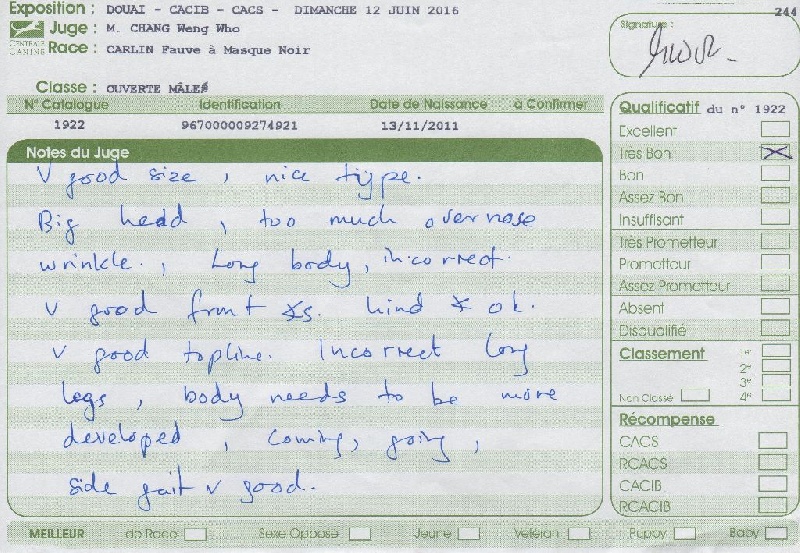 Exposition : DOUAI - CACIB - CACS - DIMANCHE 12 JUIN 2016
244
Juge : M. CHANG Weng Who
CENTRALE CANINE
Race : CARLIN Fauve à Masque Noir
Signature :
Classe : OUVERTE MÂLES
N° Catalogue Identification Date de Naissance à Confirmer
1922 967000009274921 13/11/2011
Notes du Juge
V good size, nice type.
Big head, too much over nose
wrinkle., Long body, incorrect.
V good front s. hind ok.
V good topline. Incorrect long
legs, body needs to be more
developed, coming, going,
side gait v good.
Qualificatif du n° 1922
Excellent
Très Bon
Bon
Assez Bon
Insuffisant
Très Prometteur
Prometteur
Assez Prometteur
Absent
Disqualifié
Classement 1er
2e
3e
Non Classé 4e
Récompense
CACS
RCACS
CACIB
RCACIB
MEILLEUR de Race Sexe Opposé Jeune Vétéran Puppy Baby